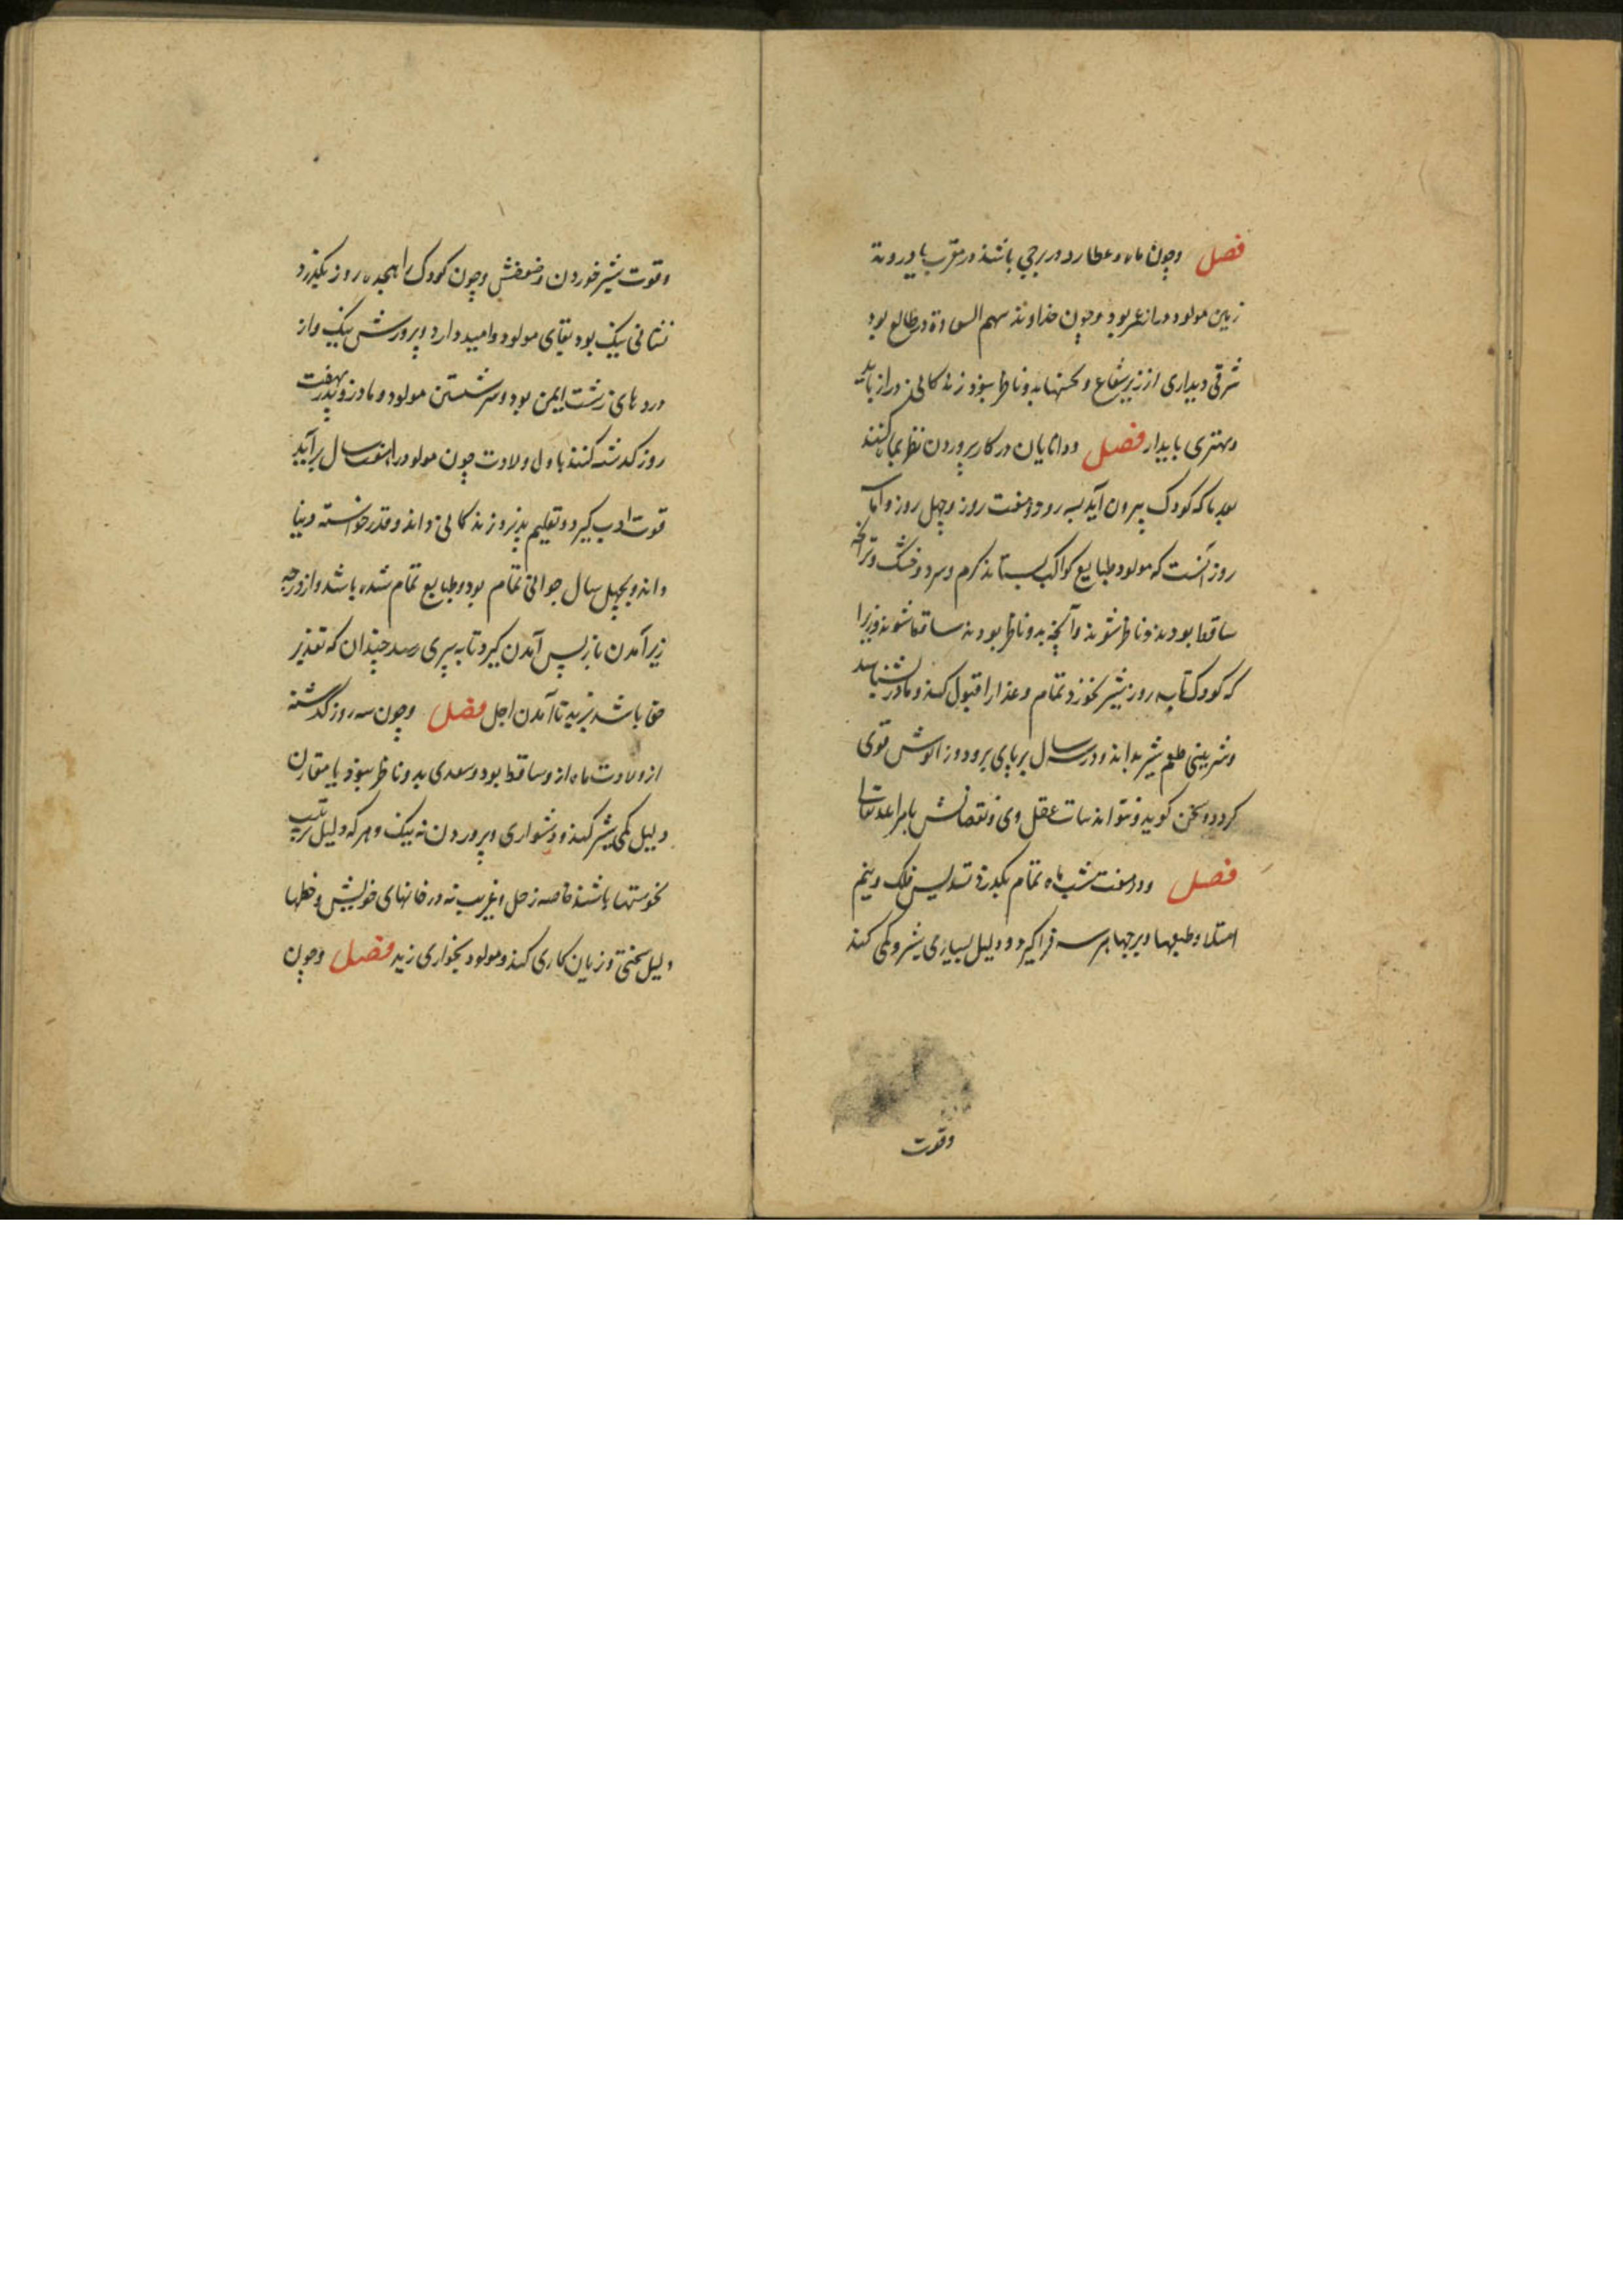 فصل وچون ماه و عطارد در برجی باشند در مغرب یا در وتد
زمین مولود دراز عمر بود وچون خداوند سهم السعادة در طالع بود
شرقی دیداری از زیر شعاع و نحسها بدو ناظر نبود زندگانی دراز یابد
ومهتری پایدار فصل ودانایان در کار پروردن نظر بماه کنند
بعد ما که کودک بیرون آید بسه روز وهفت روز وچهل روز
روز آنست که مولود طبایع کواکب بستاند گرم وسرد وخشک وتر آنچه
ساقط بودند ناظر شوند وآنچه بدو ناظر بودند ساقط شوند زیرا
که کودک تا سه روز شیر نخورد تمام وغذا را قبول کند ومادر بشناسد
وشیرینی طعم شیر بداند ودر سال بر پای برود وزانوش قوی
گردد وسخن گوید وبتواند عقل وی ونقصانش بامر الله تعالی
فصل ودر هفت شب ماه تمام بگذرد تسدیس فلک ونیم
امتلا وطبعها وبرجها هر سه فراگیرد ودلیل بسیاری شیر وکمی کند
وقوت
وقوت شیر خوردن وضعفش وچون کودک را هجده روز بگذرد
نشانی نیک بود بقای مولود وامید دارد وپرورش نیک واز
دردهای زشت ایمن بود وسرشستن مولود ومادر وپدر بهفت
روز گذشته کنند باول ولادت چون مولود را هفت سال برآید
قوت ادب گیرد وتعلیم پذیرد وزندگانی داند وقدر خواسته دنیا
داند وبچهل سال جوانی تمام بود وطبایع تمام شده باشد واز درجه
زیر آمدن باز پس آمدن گیرد تا به پیری رسد چندان که تقدیر
حق باشد بزید تا آمدن اجل فصل وچون سه روز گذشته
از ولادت ماه ازو ساقط بود وسعدی بدو ناظر نبود یا مقارن
دلیل کمی شیر کند ودشواری وپروردن نه نیک وهر که دلیل تربیت
نحوستها باشند خاصه زحل غریب نه در خانهای خویش وخطها
دلیل سختی وزیان کاری کند ومولود بخواری زید فصل وچون